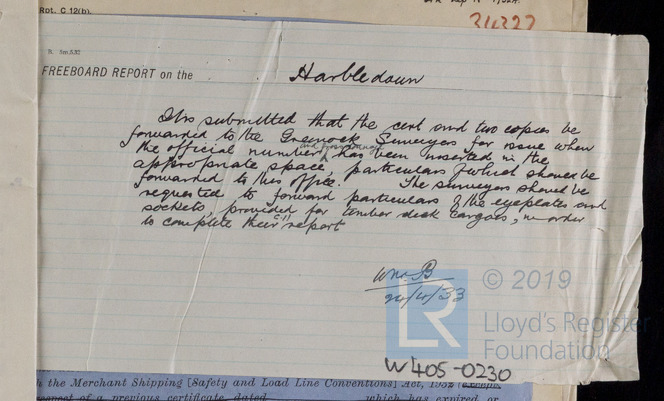 Rpt. C 12(b).
34322
R. 5m.5.32
FREEBOARD REPORT on the Harbledown
It is submitted that the cert and two copies be
forwarded to the Greenock Surveyors for issue when
the official number has been inserted in the
appropriate space, particulars of which should be
forwarded to this office. The surveyors should be
requested to forward particulars of the eyeplates and
sockets, provided for timber deck cargoes, in order
to complete their C11 report
Wm. B
/33
© 2019
LR
Lloyd's Register
Foundation
W405-0230
h the Merchant Shipping [Safety and Load Line Conventions] Act, 1932 (except
respect of a previous certificate dated which has expired or